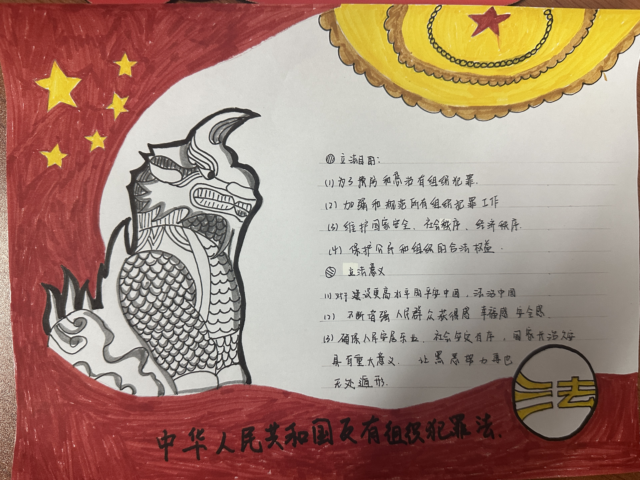 立法目的:
(1) 为了预防和惩治有组织犯罪.
(2) 加强和规范反有组织犯罪工作
(3) 维护国家安全、社会秩序、经济秩序.
(4) 保护公民和组织的合法权益.
立法意义
(1) 对于建设更高水平的平安中国、法治中国
(2) 不断增强人民群众获得感、幸福感、安全感
(3) 确保人民安居乐业、社会安定有序、国家长治久安
具有重大意义. 让黑恶势力
无处遁形.
法
中华人民共和国反有组织犯罪法.